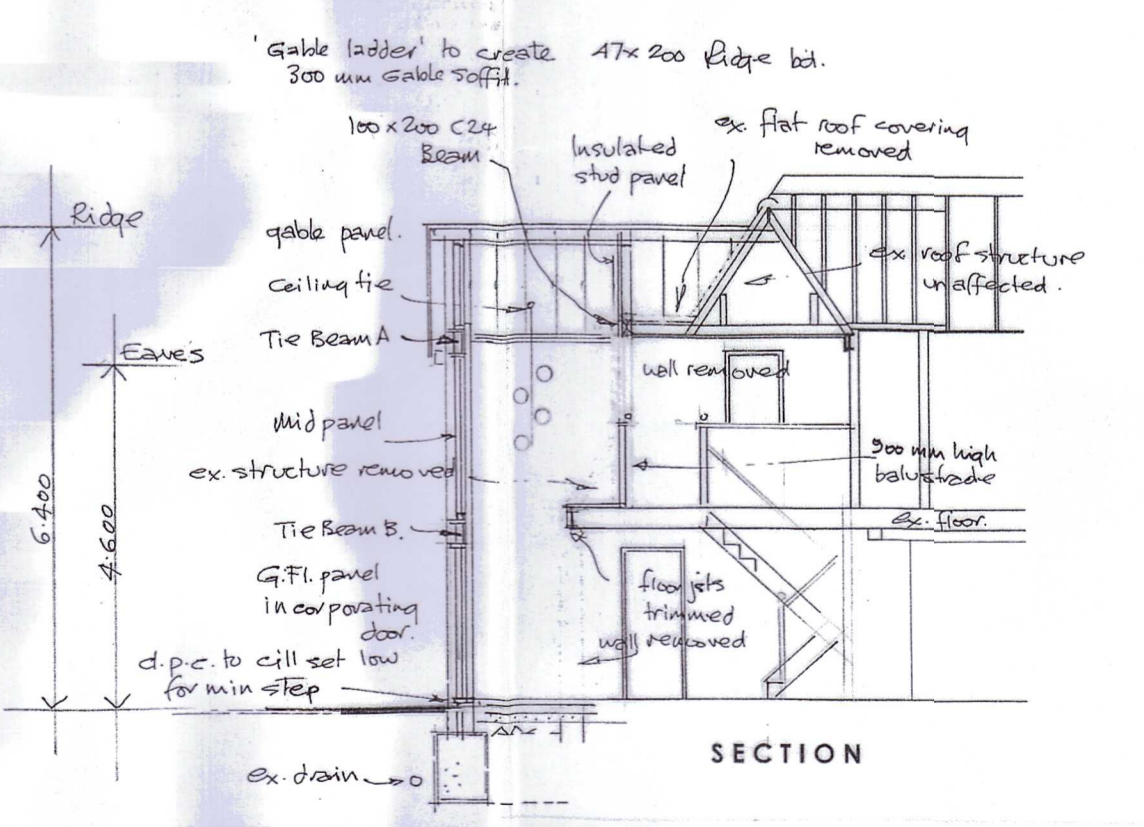 'Gable ladder' to create
300 mm Gable Soffit.
47x 200 Ridge bd.
100 x 200 C24
Beam
Insulated
stud panel
ex. flat roof covering
removed
Ridge
gable panel.
ceiling tie
ex. roof structure
unaffected.
Tie Beam A
Eaves
wall removed
Mid panel
ex. structure removed
900 mm high
balustrade
6.400
4.600
Tie Beam B.
ex. floor.
G.Fl. panel
incorporating
door.
floor jsts
trimmed
wall removed
d.p.c. to cill set low
for min step
SECTION
ex. drain